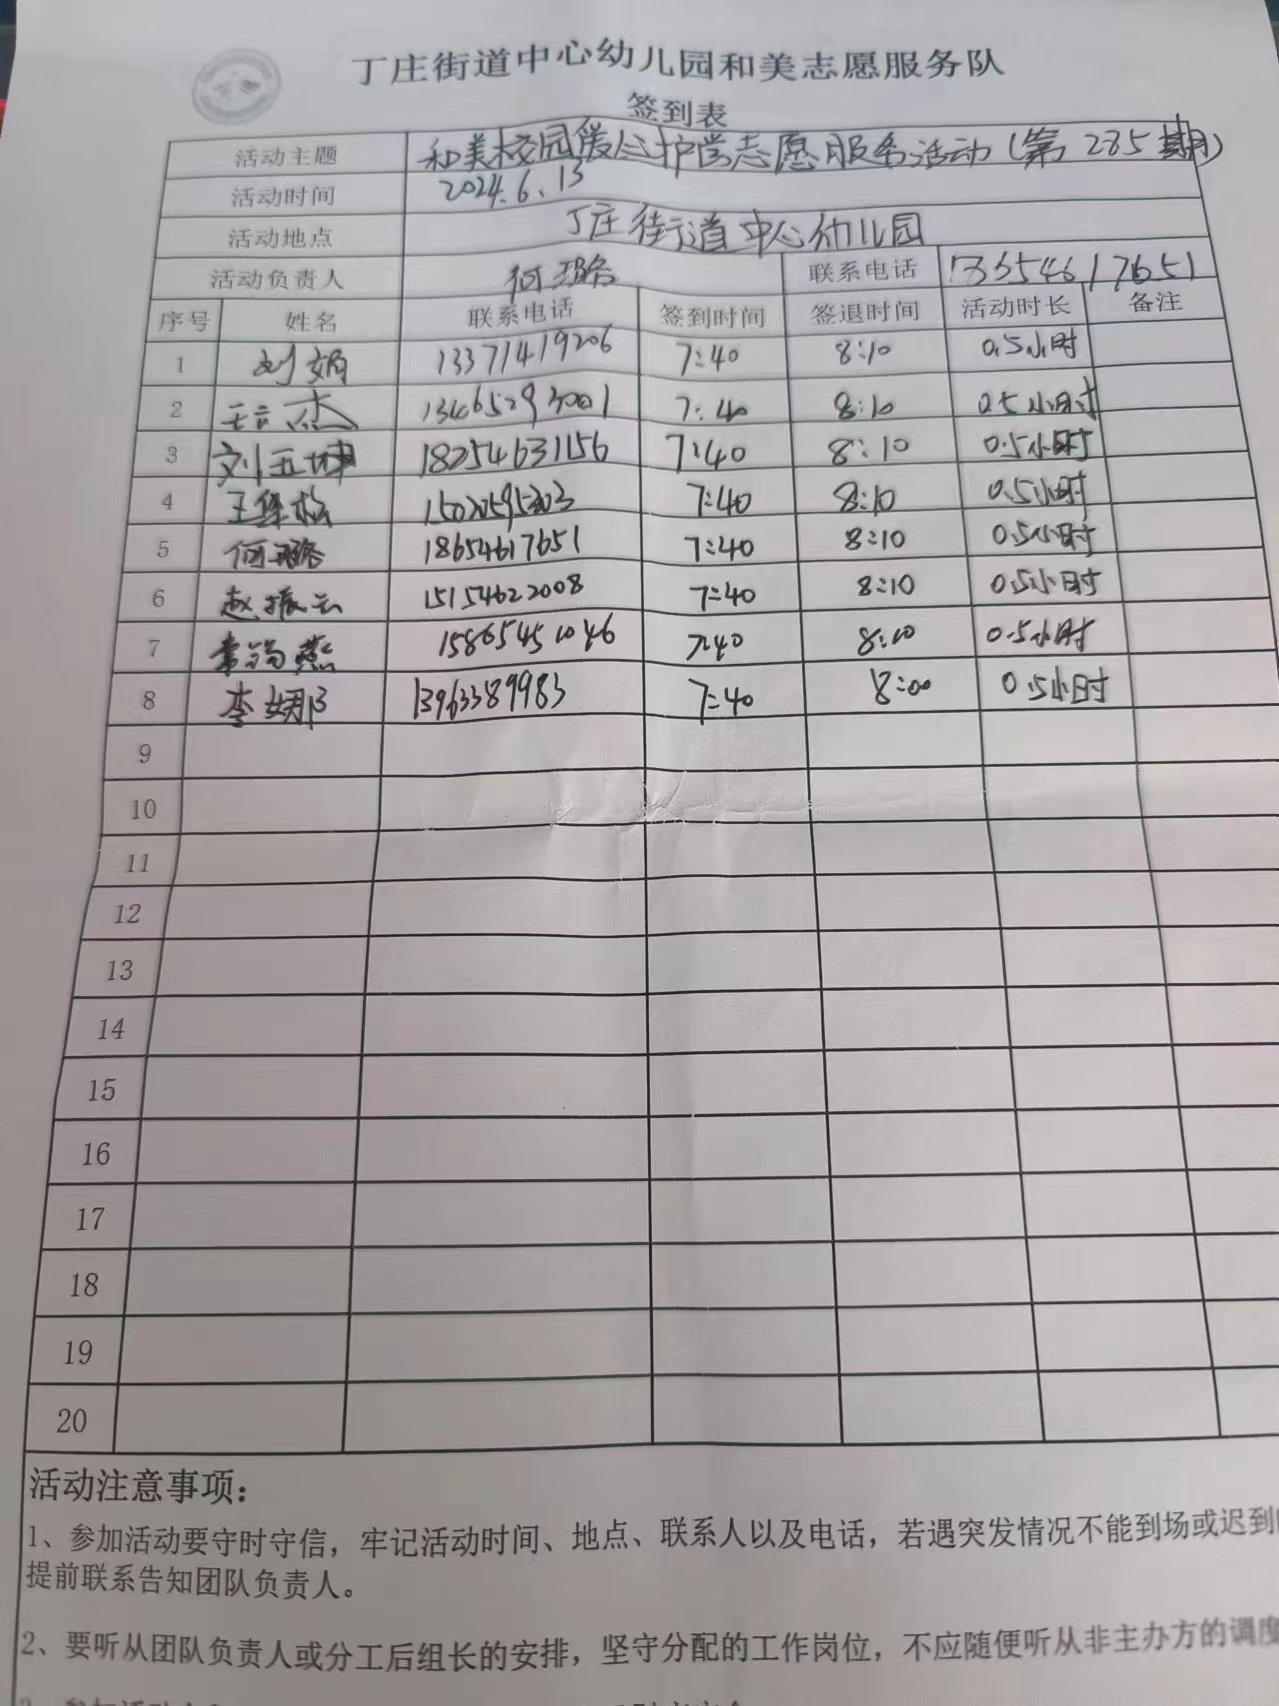 丁庄街道中心幼儿园和美志愿服务队
签到表
活动主题 和美校园爱心护学志愿服务活动(第285期)
活动时间 2024.6.13
活动地点 丁庄街道中心幼儿园
活动负责人 何璐 联系电话 13654617651
序号 姓名 联系电话 签到时间 签退时间 活动时长 备注
1 刘娟 13371419206 7:40 8:10 0.5小时
2 13465293001 7:40 8:10 0.5小时
3 刘玉坤 18254631156 7:40 8:10 0.5小时
4 7:40 8:10 0.5小时
5 何璐 18654617651 7:40 8:10 0.5小时
6 赵振云 15154622008 7:40 8:10 0.5小时
7 15865451046 7:40 8:10 0.5小时
8 李娜 13963389983 7:40 8:00 0.5小时
9
10
11
12
13
14
15
16
17
18
19
20
活动注意事项:
1、参加活动要守时守信,牢记活动时间、地点、联系人以及电话,若遇突发情况不能到场或迟到
提前联系告知团队负责人。
2、要听从团队负责人或分工后组长的安排,坚守分配的工作岗位,不应随便听从非主办方的调度